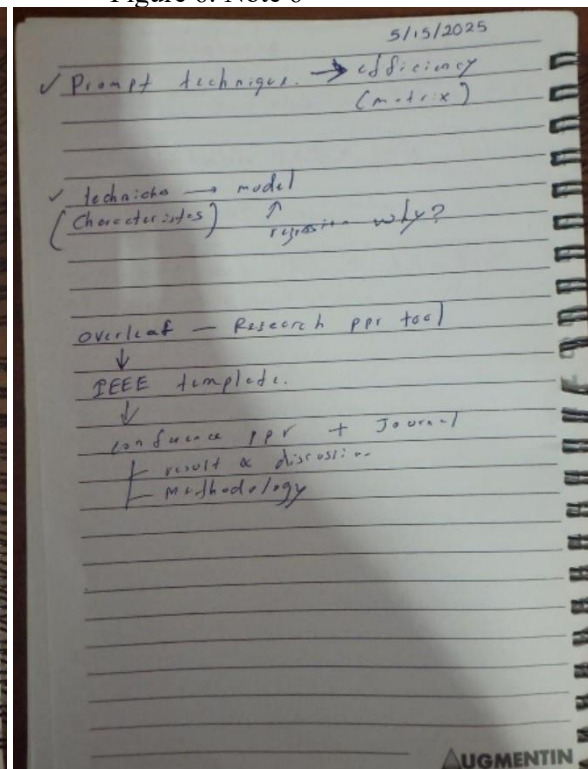 Figure 6. Note 6
5/15/2025
✓ Prompt technique. → efficiency
(matrix)
✓ techniches → model
(Characteristes) ↑
regression why?
Overleaf — Research ppr tool
↓
IEEE template.
↓
conference ppr + Journal
result & discussion
Methodology
AUGMENTIN